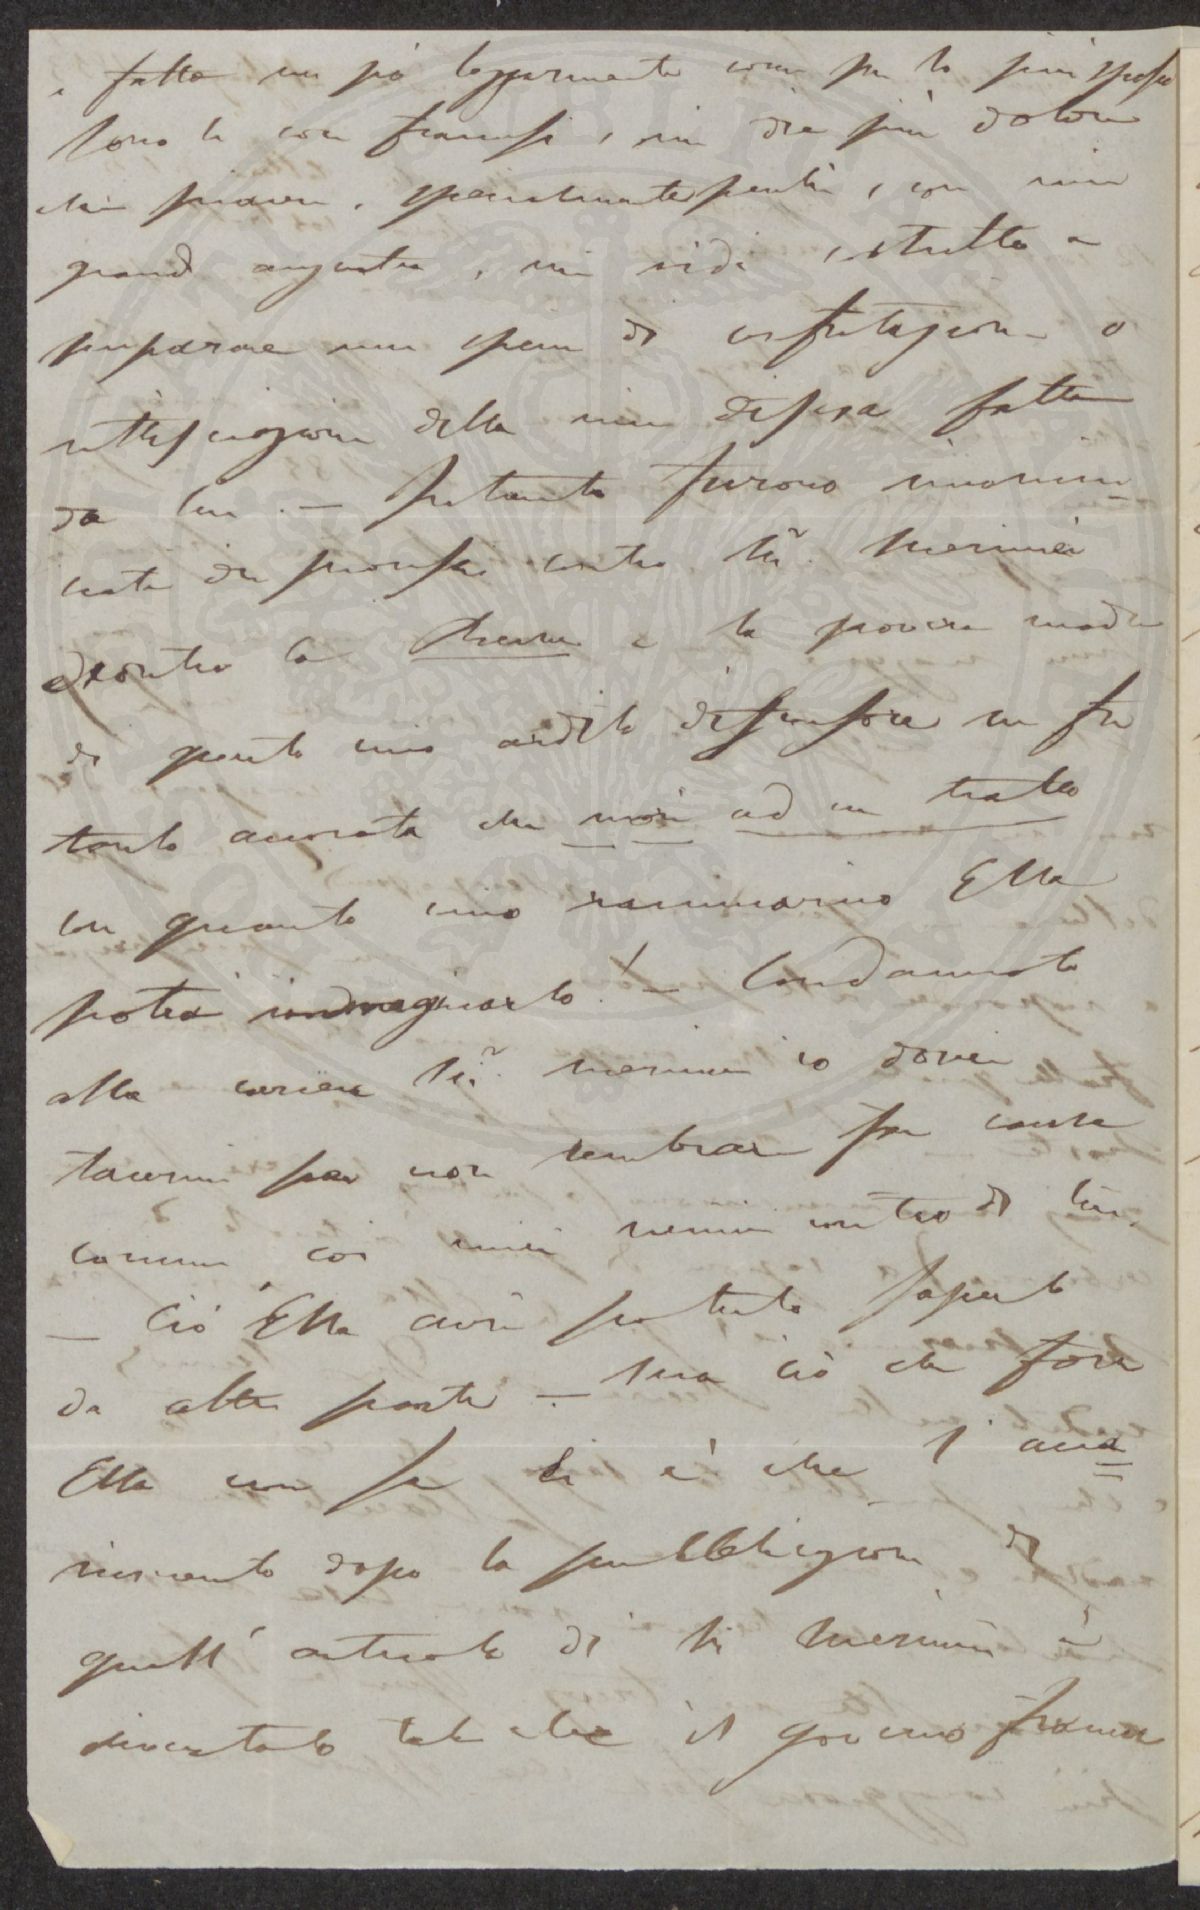 e fatta un pò leggermente come per lo più spesso
sono le cose francesi, mi die più dolore
che piacere, specialmente perchè, con mia
grande angustia, mi vidi costretto a
preparare una specie di confutazione o
rettificazione della mia difesa fatta
da lui. — Pertanto furono rincomin-
ciate di processi contro Mr. Merimée
e contro la Revue e la povera madre
di questo mio ardito difensore ne fu
tanto accorata che morì ad un tratto
con quanto mio rammarico Ella
potrà immaginarlo! — Condannato
alla carcere Mr. Merimée io dovei
tacermi per non sembrare far causa
comune coi miei nemici contro di lui.
— Ciò Ella avrà potuto saperlo
da altra parte — Ma ciò che forse
Ella non sa si è che l'acca=
nimento dopo la pubblicazione di
quell'articolo di Mr Merimée è
diventato tale che il governo francese